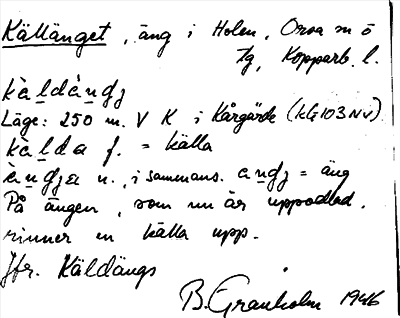 Källänget, äng i Holen, Orsa sn ö
tg, Kopparb. l.
kàldàngʒ
Läge: 250 m. V K i Kårgärde (kG103NV).
kàlda f. = källa
àngʒa n., i sammans. angʒ = äng
På ängen, som nu är uppodlad,
rinner en källa upp.
Jfr. Käldängs
B. Granholm 1946